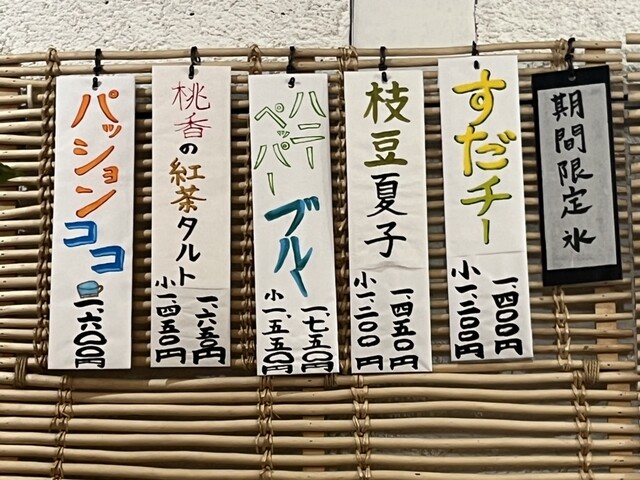 期間限定氷
すだチー
一、四〇〇円
小一、二〇〇円
枝豆夏子
一、四五〇円
小一、二〇〇円
ハニー
ペッパー
ブルー
一、七五〇円
小一、五五〇円
桃香の紅茶タルト
一、六五〇円
小一、四五〇円
パッション
ココ
一、六〇〇円